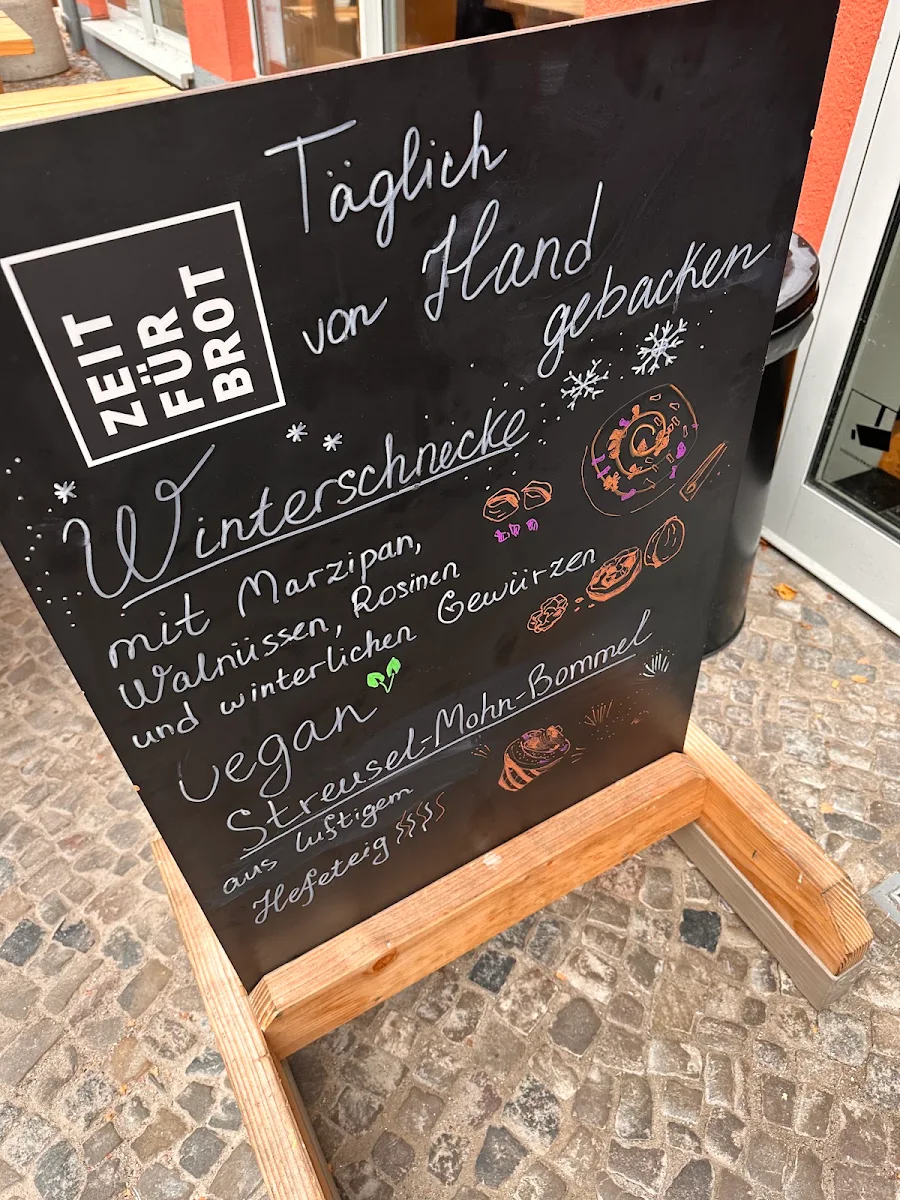 Täglich
von Hand
gebacken
ZEIT
FÜR
BROT
Winterschnecke
mit Marzipan,
Walnüssen, Rosinen
und winterlichen Gewürzen
vegan
Streusel-Mohn-Bommel
aus luftigem
Hefeteig